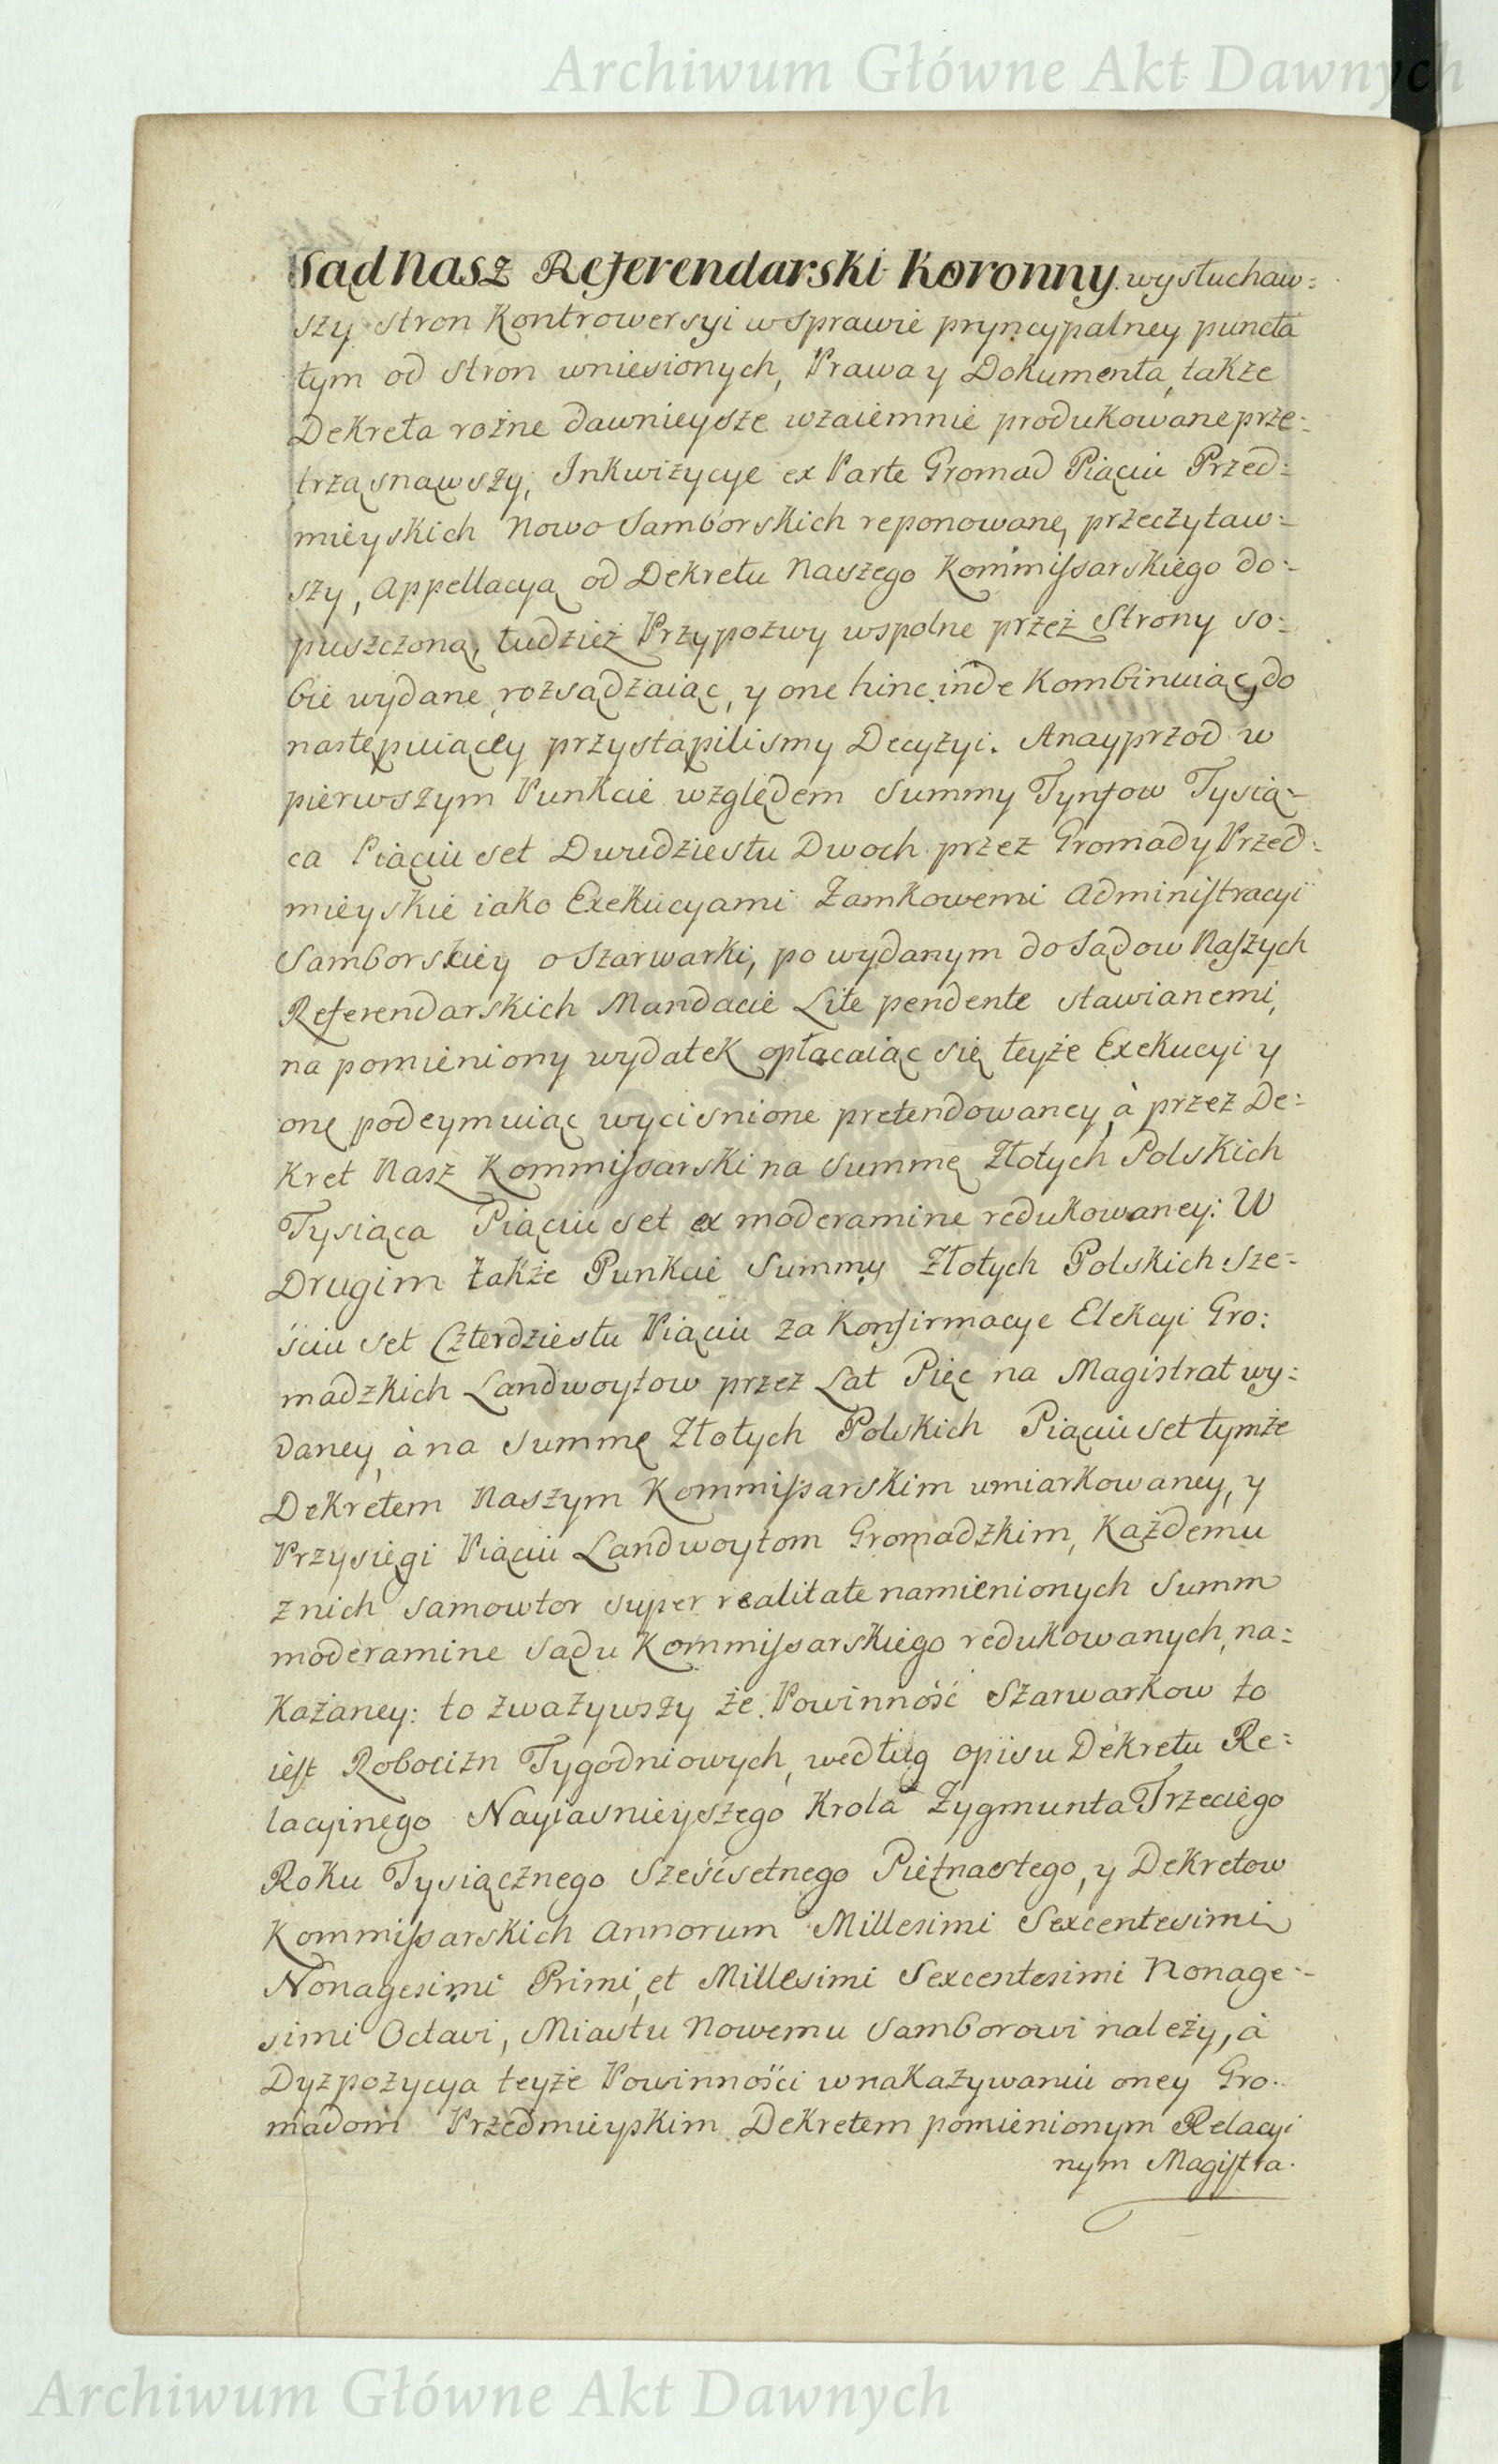 Archiwum Główne Akt Dawnych
Sąd Nasz Referendarski Koronny wysłuchaw:
szy stron Kontrowersyi w sprawie pryncypalney puncta
tym od stron wniesionych, Prawa y Dokumenta, także
Dekreta rożne dawnieysze wzaiemnie produkowane prze:
trząsnąwszy, Inkwizycye ex Parte Gromad Piąciu Przed:
mieyskich Nowo Samborskich reponowane, przeczytaw:
szy, Appellacyą od Dekretu Naszego Kommissarskiego do:
puszczoną, tudzież Przypozwy wspolne przez Strony so:
bie wydane, rozsądzaiąc, y one hinc inde Kombinuiąc, do
następuiącey przystąpilismy Decyzyi. A nayprzod w
pierwszym Punkcie względem Summy Tynfow Tysią:
ca Piąciu set Dwudziestu Dwoch przez Gromady Przed:
mieyskie iako Exekucyami Zamkowemi Administracyi
Samborskiey o Szarwarki, po wydanym do Sądow Naszych
Referendarskich Mandacie Lite pendente stawianemi,
na pomieniony wydatek opłacaiąc się teyże Exekucyi y
onę podeymuiąc wyciśnione pretendowaney, à przez De:
kret Nasz Kommissarski na Summę Złotych Polskich
Tysiąca Piąciu set ex moderamine redukowaney: W
Drugim także Punkcie Summy Złotych Polskich Sze:
ściu set Czterdziestu Piąciu za Konfirmacye Elekcyi Gro:
madzkich Landwoytow przez Lat Pięc na Magistrat wy:
daney, à na Summę Złotych Polskich Piąciu set tymże
Dekretem Naszym Kommissarskim umiarkowaney, y
Przysięgi Piąciu Landwoytom Gromadzkim, Każdemu
z nich samowtor super realitate namienionych Summ
moderamine Sądu Kommissarskiego redukowanych, na:
każaney: to zważywszy że Powinność Szarwarkow to
iest Robocizn Tygodniowych, według opisu Dekretu Re:
lacyinego Nayiasnieyszego Krola Zygmunta Trzeciego
Roku Tysiącznego Sześćsetnego Piętnastego, y Dekretow
Kommissarskich Annorum Millesimi Sexcentesimi
Nonagesimi Primi, et Millesimi Sexcentesimi Nonage:
simi Octavi, Miastu Nowemu Samborowi należy, à
Dyzpozycya teyże Powinności w nakazywaniu oney Gro:
madom Przedmieyskim Dekretem pomienionym Relacyi
nym Magistra.
Archiwum Główne Akt Dawnych